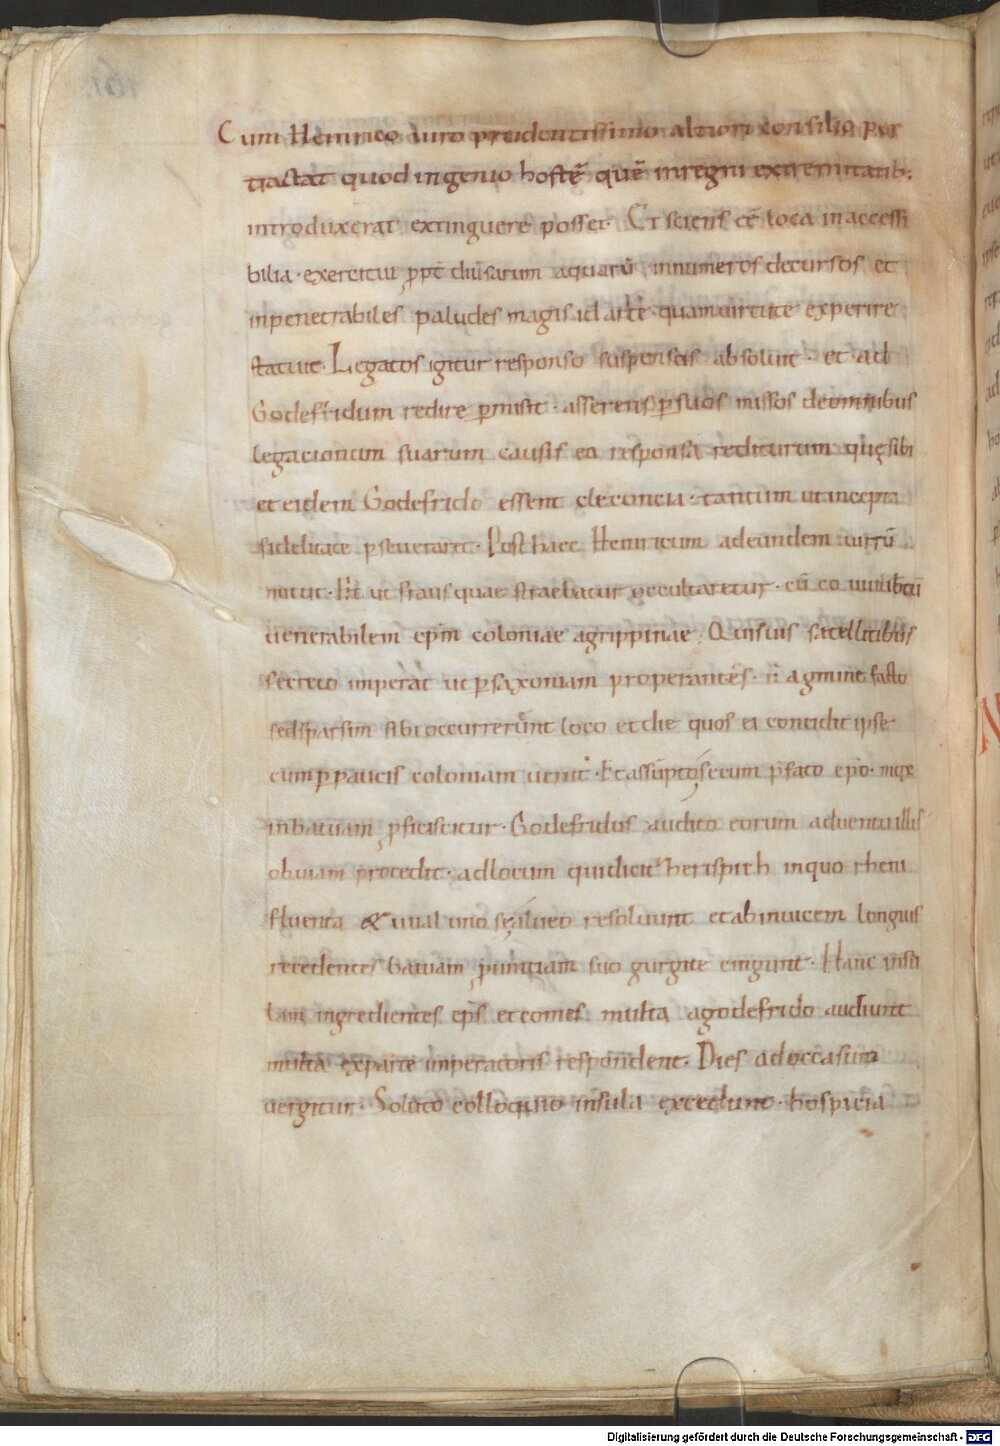 Cum Heinrico uiro prudentissimo altiori consilio per
tractat quod ingenio hostē quē inregni extremitatib;
introduxerat extinguere posset· Et sciens eē loca inaccessi
bilia· exercitui ꝓpt diuersarum aquarū innumeros decursos et
inpenetrabiles paludes magis id arte· quam uirtute experire
statuit· Legatos igitur responso suspensos absoluit· et ad
Godefridum redire pmisit· asserens p suos missos deomnibus
legacionum suarum causis ea responsa rediturum quę sibi
et eidem Godefrido essent decencia· tantum ut incepta
fidelitate pseueraret· Post haec Heinricum adeundem uirrū
mittit· Et ut fraus quae struebatur occultaretur· cū eo
uenerabilem epm coloniae agrippinae· Qui suis satellitibus
secreto imperat ut p saxoniam properantes· n̄ agmine facto
sed sparsim sibi occurrerūnt loco et die quos ei contidit ipse
cum ppaucis coloniam uenit· Et assūpto secum pfato epo· mox
inbatuam ꝓficiscitur· Godefridus audito eorum aduentu illis
obuiam procedit· adlocum qui dicit herispich inquo rheni
fluenta & uual uno se alueo resoluunt et abinuicem longius
recedentes batuam ꝓuintiam suo gurgite cingunt· Hanc insu
lam ingredientes eps et comes multa agodefrido audiunt
multa exparte imperatoris respondent· Dies adoccasum
uergitur· Soluto colloquio insula excedunt· hospicia
Digitalisierung gefördert durch die Deutsche Forschungsgemeinschaft - DFG